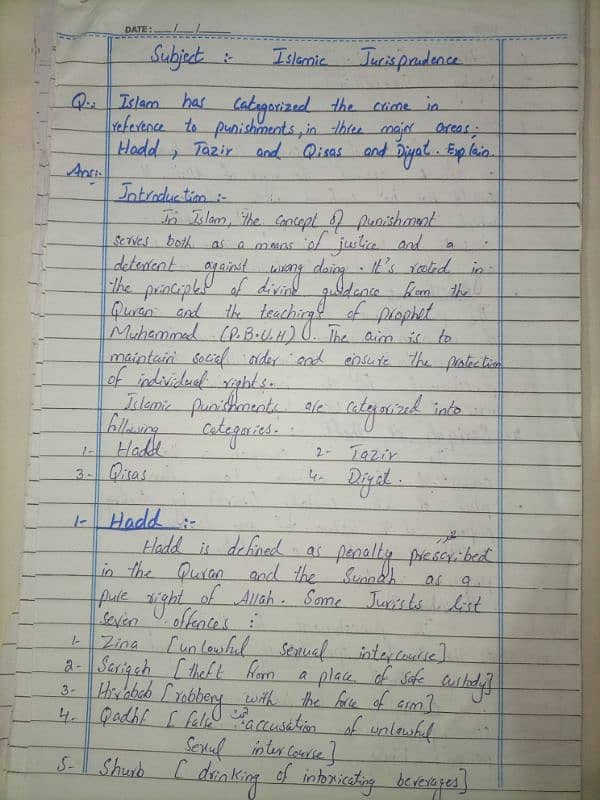 DATE: __/__/____
Subject :- Islamic Jurisprudence
Q.: Islam has categorized the crime in
reference to punishments, in three major areas;
Hadd, Tazir and Qisas and Diyat. Explain.
Ans:-
Introduction :-
In Islam, the concept of punishment
serves both as a means of justice and a
deterrent against wrong doing. It's rooted in
the principles of divine guidance from the
Quran and the teachings of prophet
Muhammad (P.B.U.H). The aim is to
maintain social order and ensure the protection
of individual rights.
Islamic punishments are categorized into
following categories.
1- Hadd 2- Tazir
3- Qisas 4- Diyat.
1- Hadd :-
Hadd is defined as penalty prescribed
in the Quran and the Sunnah as a
pure right of Allah. Some Jurists list
seven offences :
1- Zina [unlawful sexual intercourse]
2- Sariqah [theft from a place of safe custody]
3- Hirabah [robbery with the force of arm]
4. Qadhf [false accusation of unlawful
Sexul intercourse]
5- Shurb [drinking of intoxicating beverages]